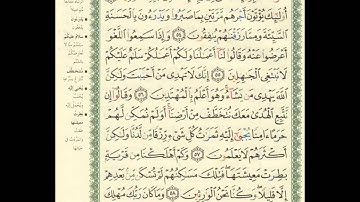 أُو۟لَـٰٓئِكَ يُؤْتَوْنَ أَجْرَهُم مَّرَّتَيْنِ بِمَا صَبَرُوا۟ وَيَدْرَءُونَ بِٱلْحَسَنَةِ
ٱلسَّيِّئَةَ وَمِمَّا رَزَقْنَـٰهُمْ يُنفِقُونَ ٥٤ وَإِذَا سَمِعُوا۟ ٱللَّغْوَ
أَعْرَضُوا۟ عَنْهُ وَقَالُوا۟ لَنَآ أَعْمَـٰلُنَا وَلَكُمْ أَعْمَـٰلُكُمْ سَلَـٰمٌ عَلَيْكُمْ
لَا نَبْتَغِى ٱلْجَـٰهِلِينَ ٥٥ إِنَّكَ لَا تَهْدِى مَنْ أَحْبَبْتَ وَلَـٰكِنَّ
ٱللَّهَ يَهْدِى مَن يَشَآءُ وَهُوَ أَعْلَمُ بِٱلْمُهْتَدِينَ ٥٦ وَقَالُوٓا۟ إِن
نَّتَّبِعِ ٱلْهُدَىٰ مَعَكَ نُتَخَطَّفْ مِنْ أَرْضِنَآ أَوَلَمْ نُمَكِّن لَّهُمْ
حَرَمًا ءَامِنًا يُجْبَىٰٓ إِلَيْهِ ثَمَرَٰتُ كُلِّ شَىْءٍ رِّزْقًا مِّن لَّدُنَّا وَلَـٰكِنَّ
أَكْثَرَهُمْ لَا يَعْلَمُونَ ٥٧ وَكَمْ أَهْلَكْنَا مِن قَرْيَةٍۭ
بَطِرَتْ مَعِيشَتَهَا فَتِلْكَ مَسَـٰكِنُهُمْ لَمْ تُسْكَن مِّنۢ بَعْدِهِمْ
إِلَّا قَلِيلًا وَكُنَّا نَحْنُ ٱلْوَٰرِثِينَ ٥٨ وَمَا كَانَ رَبُّكَ مُهْلِكَ